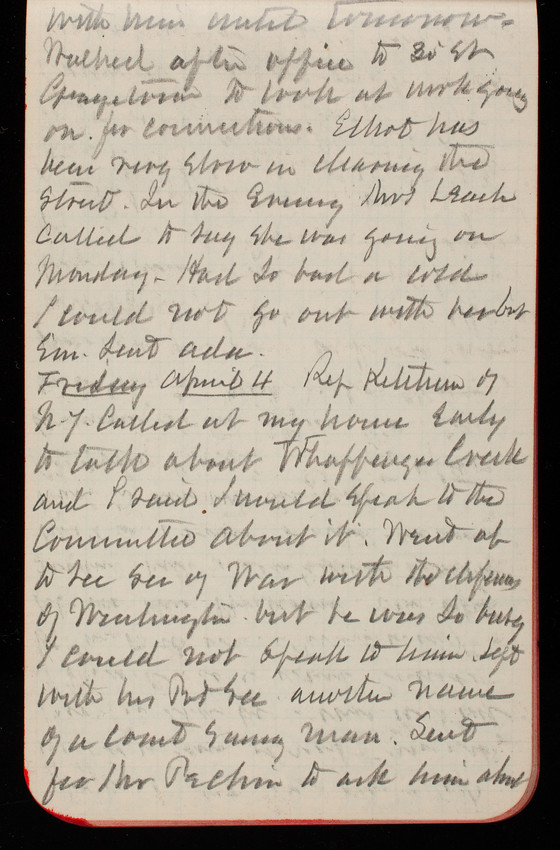 with him until tomorrow.
Walked after office to 30 St
Georgetown to look at work going
on for connections. Elliot has
been very slow in clearing the
street. In the Evening Mrs Leach
called to say she was going on
Monday - Had so bad a cold
I could not go out with her but
Em. sent ada.
Friday April 4 Rep Ketcham of
N.Y. Called at my house Early
to talk about Whappenger Creek
and I said I would speak to the
Committee about it. Went up
to see Sec of War with the defenses
of Washington but he was so busy
I could not speak to him. Left
with his Pvt Sec another name
of a Coast Survey man. Sent
for Mr to ask him about